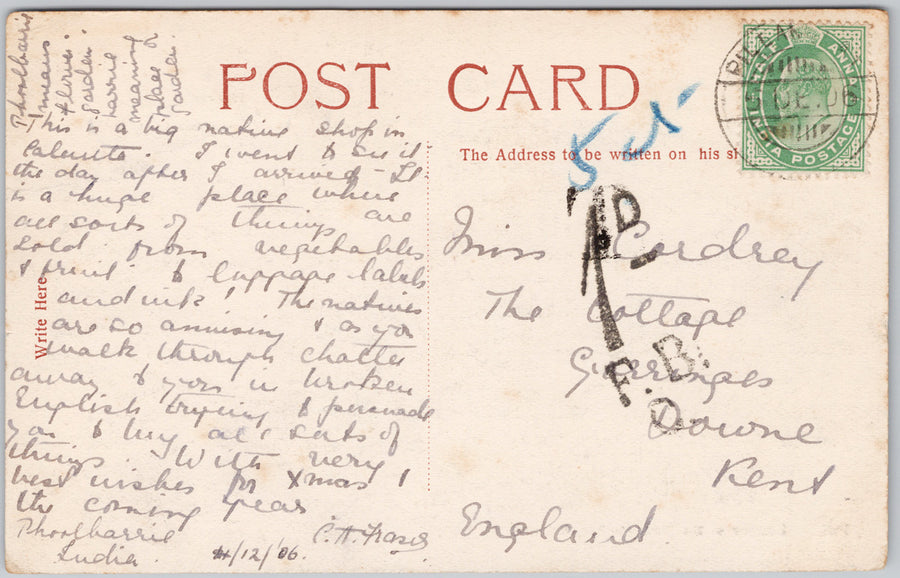 Phoolbarrie
means
flower
garden
barrie
meaning a
place or
garden.
POST CARD
This is a big native shop in
Calcutta. I went to see it
the day after I arrived - It
is a huge place where
all sorts of things are
sold from vegetables
& fruit to luggage labels
and ink! The natives
are so amusing & as you
walk through chatter
away to you in broken
English trying to persuade
you to buy all sorts of
things. With very
best wishes for Xmas &
the coming year
Phoolbarrie
India.
C. A. Fraser
4/12/'06.
Write Here.
The Address to be written on his si
HALF ANNA
INDIA POSTAGE
DE 06
1D
F.B.
O.
Miss Cordrey
The Cottage
Downe
Kent
England.